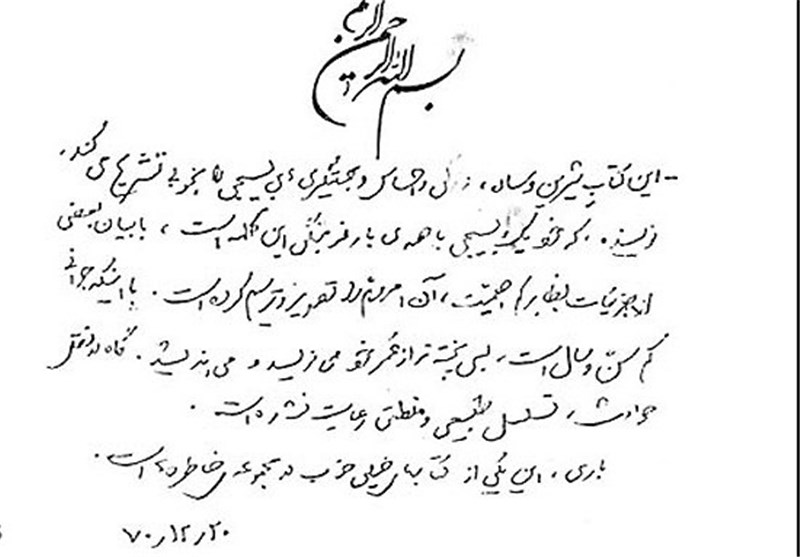 بسم الله الرحمن الرحیم
- این کتاب شیرین و ساده، زندگی و احساس و جهتگیری‌های بسیجی را بخوبی تشریح می کند.
نویسنده، که خود یک بسیجی با همه‌ی بار فرهنگی این کلمه است، با بیان بعضی
از جزئیات بظاهر کم اهمیت، آن امر مهم را تصویر و ترسیم کرده است. با اینکه جوانی
کم سنّ و سال است، بسی پخته تر از عمر خود می نویسد و می اندیشد. گاه در نقل
حوادث، تسلسل طبیعی و منطقی رعایت نشده است.
باری، این یکی از کتابهای خیلی خوب در مجموعه‌ی خاطره‌ها است.
۷۰٫۱۲٫۲۰